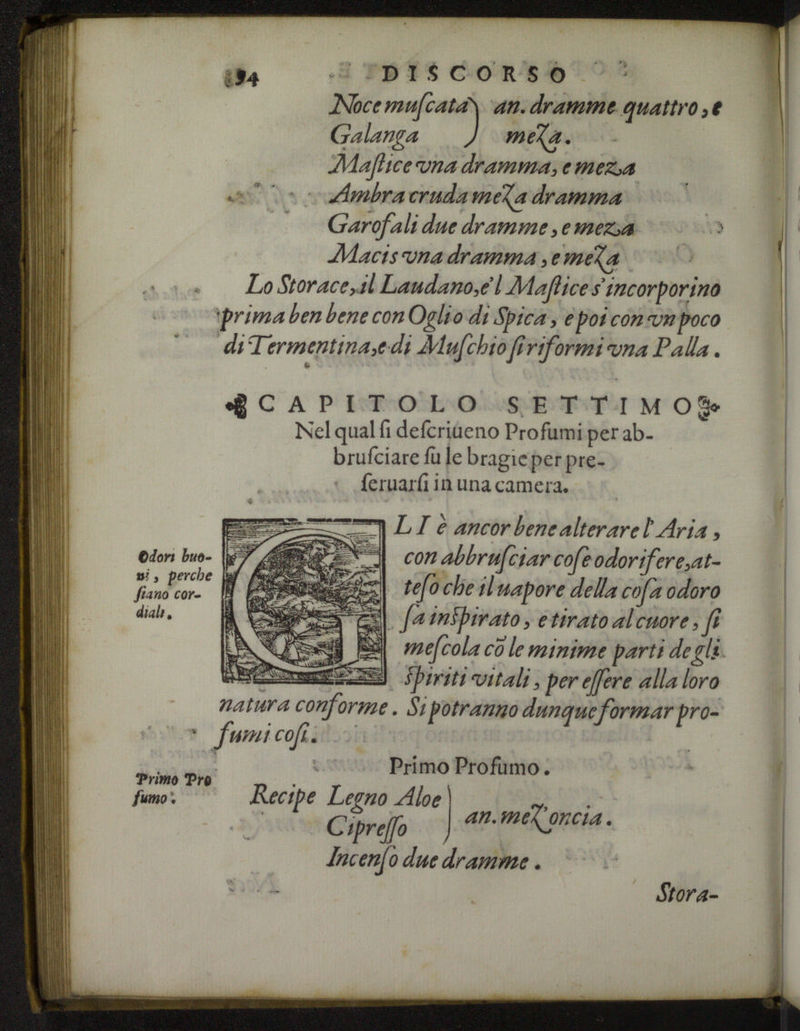 94 DISCORSO
Noce muſcata} an. dramme quattro, e
Galanga } meza.
Maſtice vna dramma, e meza
Ambra cruda meza dramma
Garofali due dramme, e meza
Macis vna dramma, e meza
Lo Storace, il Laudano, e'l Maſtice s'incorporino
prima ben bene con Oglio di Spica, e poi con vn poco
di Termentina, e di Muſchio ſi riformi vna Palla.
CAPITOLO SETTIMO
Nel qual ſi deſcriueno Profumi per ab-
bruſciare ſu le bragie per pre-
ſeruarſi in una camera.
GLI è ancor bene alterare l'Aria,
con abbruſciar coſe odorifere, at-
teſo che il uapore della coſa odoro
ſa inſpirato, e tirato al cuore, ſi
meſcola cō le minime parti degli
ſpiriti vitali, per eſſere alla loro
natura conforme. Si potranno dunque formar pro-
fumi coſi.
Odori buo-
ni, perche
ſiano cor-
diali.
Primo Profumo.
Primo Pro
fumo.
Recipe Legno Aloe}
Cipreſſo } an. mez'oncia.
Incenſo due dramme.
Stora-